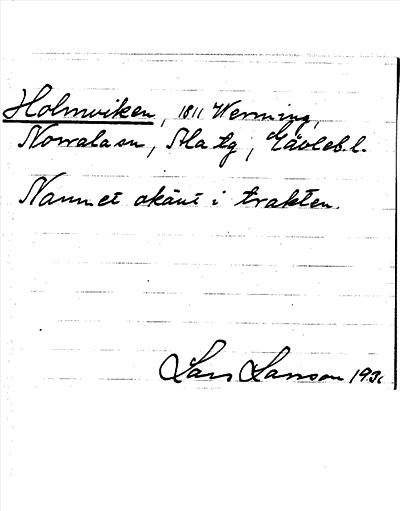 Holmviken, 1811 Werming,
Norrala sn, Ala tg, Gävleb.l.
Namnet okänt i trakten.
Lars Larsson 193